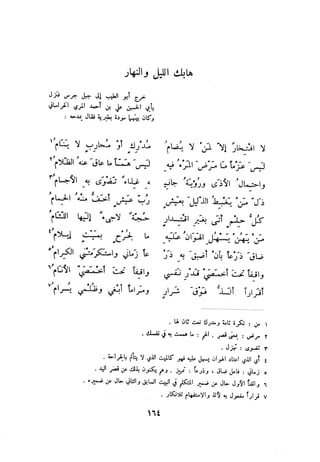 هابك الليل والنهار
خرج أبو الطيب إلى جبل جرش فنزل
بأبي الحسين علي بن أحمد المري الخراساني
وكان بينهما مودة بطبرية فقال يمدحه :
لا افتِخارٌ إلاّ لمَنْ لا يُضامُ مُدْرِكٍ أوْ مُحارِبٍ لا يَنَامُ ١
لَيسَ عَزْماً مَا مَرّضَ المَرْءُ فيهِ لَيسَ هَمّاً ما عاقَ عنهُ الظّلامُ ٢
واحتِمالُ الأذَى ورُؤيَةُ جانِيـ ـهِ غِذاءٌ تَضْوَى بهِ الأجسامُ ٣
ذَلّ مَنْ يَغْبِطُ الذّليلَ بعَيشٍ رُبّ عَيشٍ أخَفُّ منْهُ الحِمامُ
كُلُّ حِلْمٍ أتَى بغَيرِ اقْتِدارٍ حُجّةٌ لاجىءٌ إلَيها اللّئَامُ
مَنْ يَهُنْ يَسْهُلِ الهَوَانُ عَلَيهِ ما لجُرْحٍ بمَيّتٍ إيلامُ ٤
ضاقَ ذَرْعاً بأنْ أضيقَ بهِ ذَرْ عاً زَماني واستَكرَمَتْني الكِرامُ ٥
واقِفاً تحتَ أخمَصَيْ قَدْرِ نَفْسي واقِفاً تحتَ أخْمَصَيّ الأنَامُ ٦
أقَراراً ألَذُّ فَوْقَ شَرارٍ ومَراماً أبْغي وظُلْمي يُرامُ ٧
١ من : نكرة تامة ومدرك نعت ثان لها .
٢ مرض : بمعنى قصر . الهم : ما هممت به في نفسك .
٣ تضوى : تهزل .
٤ أي الذي اعتاد الهوان يسهل عليه فهو كالميت الذي لا يتألم بالجراحة .
٥ زماني : فاعل ضاق ، وذرعاً : تمييز . وهم يكنون بذلك عن قصر اليد .
٦ واقفاً الأول حال من ضمير المتكلم في البيت السابق والثاني حال من ضميره .
٧ قراراً مفعول به لألذ والاستفهام للانكار .
١٦٤